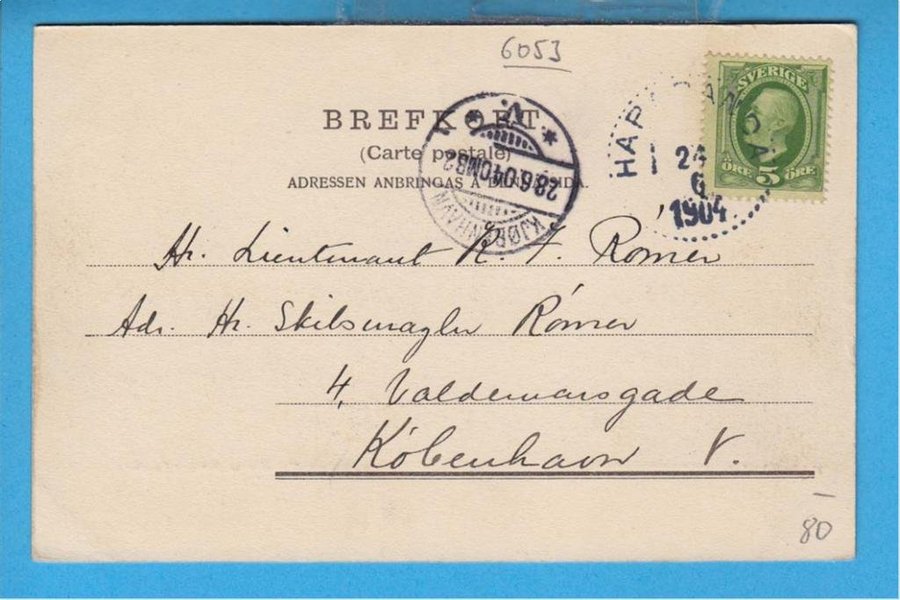 6053
BREFKORT.
(Carte postale)
ADRESSEN ANBRINGAS Å DENNA SIDA.
SVERIGE
5
ÖRE ÖRE
HAPARANDA
24
6
1904
KJØBENHAVN
V.
28.6.04 OMB2
Hr. Lieutenant R. F. Rømer
Adr. Hr. Skibsmægler Rømer
4, Valdemarsgade
København V.
80